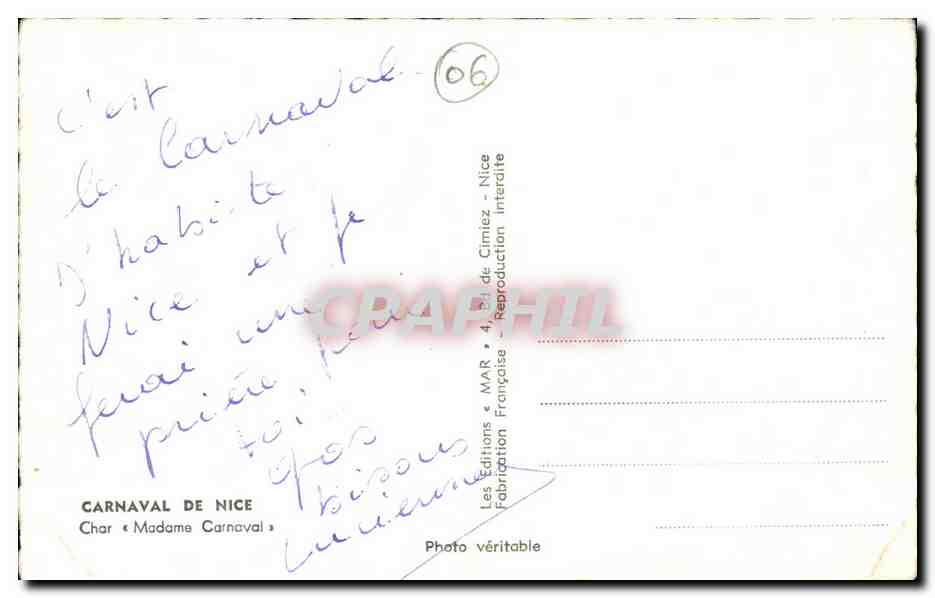 06
c'est
le Carnaval
J'habite
Nice et je
ferai une
prière pour
toi.
Gos
bisous
Lucienne
CARNAVAL DE NICE
Char « Madame Carnaval »
Photo véritable
Les Editions « MAR » 4, Bd de Cimiez - Nice
Fabrication Française - Reproduction interdite
CPAPHIL